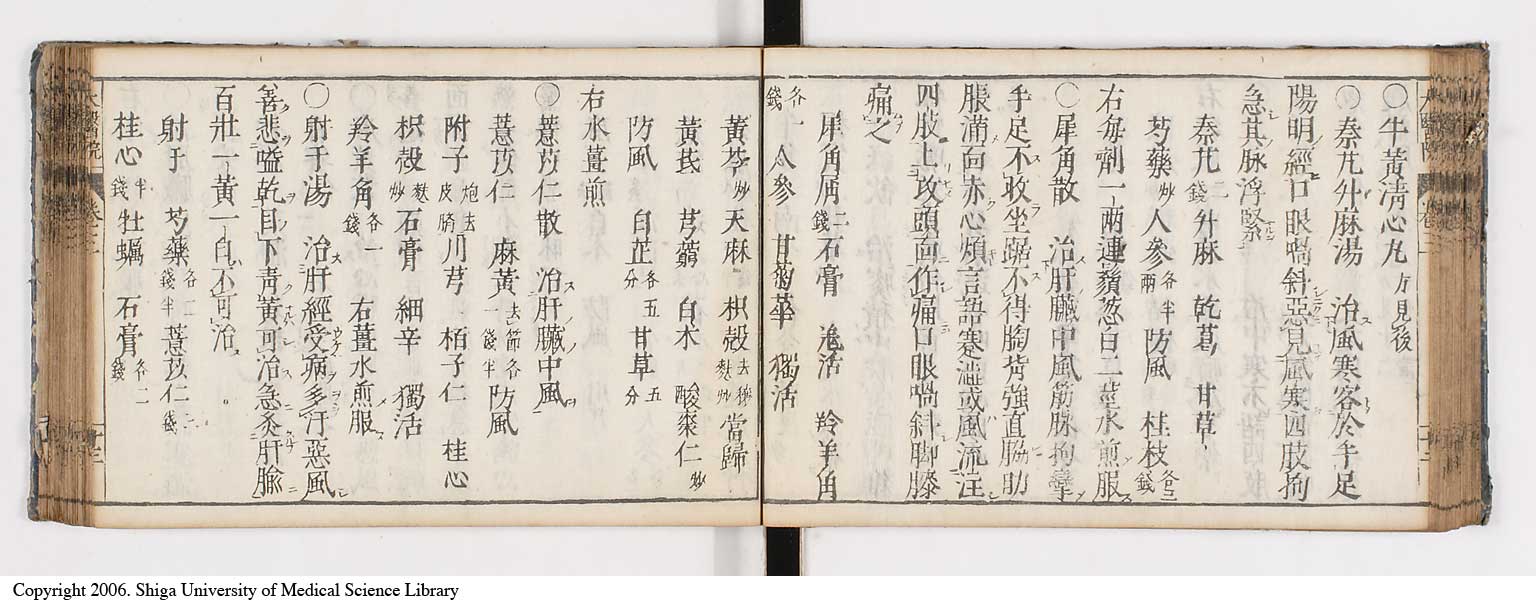 ○牛黃淸心丸 方見後
○秦艽升麻湯 治風寒客於手足
陽明經口眼喎斜惡見風寒四肢拘
急其脉浮緊
秦艽 二錢 升麻 乾葛 甘草
芍藥 炒 人參 各半兩 防風 桂枝 各三錢
右每劑一兩連鬚葱白二莖水煎服
○犀角散 治肝臟中風筋脉拘攣
手足不收坐踞不得胸背強直脇肋
脹滿面赤心煩言語蹇澁或風流注
四肢上攻頭面作痛口眼喎斜脚膝
痛之
犀角屑 二錢 石膏 羌活 羚羊角
各一錢 人參 甘菊華 獨活
黃芩 炒 天麻 枳殼 去穰麩炒 當歸
黃芪 芎藭 白朮 酸棗仁 炒
防風 白芷 各五分 甘草 五分
右水薑煎
○薏苡仁散 治肝臟中風
薏苡仁 麻黃 去節各一錢半 防風
附子 炮去皮臍 川芎 栢子仁 桂心
枳殼 麩炒 石膏 細辛 獨活
羚羊角 各一錢 右薑水煎服
○射干湯 治肝經受病多汗惡風
善悲嗌乾目下靑黃可治急灸肝腧
百壯一黃一白不可治
射于 芍藥 各一錢半 薏苡仁
桂心 半錢 牡蠣 石膏 各二錢
Copyright 2006. Shiga University of Medical Science Library